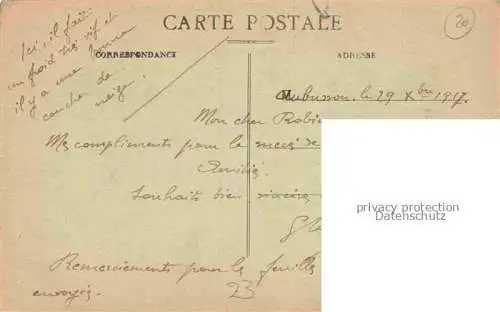 CARTE POSTALE
CORRESPONDANCE
ADRESSE
20
Ici il fait
un froid très vif et
il y a une bonne
couche de
neige.
Aubusson, le 29 Xbre 1917.
Mon cher Robin
Mes compliments pour le succès de
Souhaits bien sincères
Remerciements pour les feuilles
envoyées.
privacy protection
Datenschutz